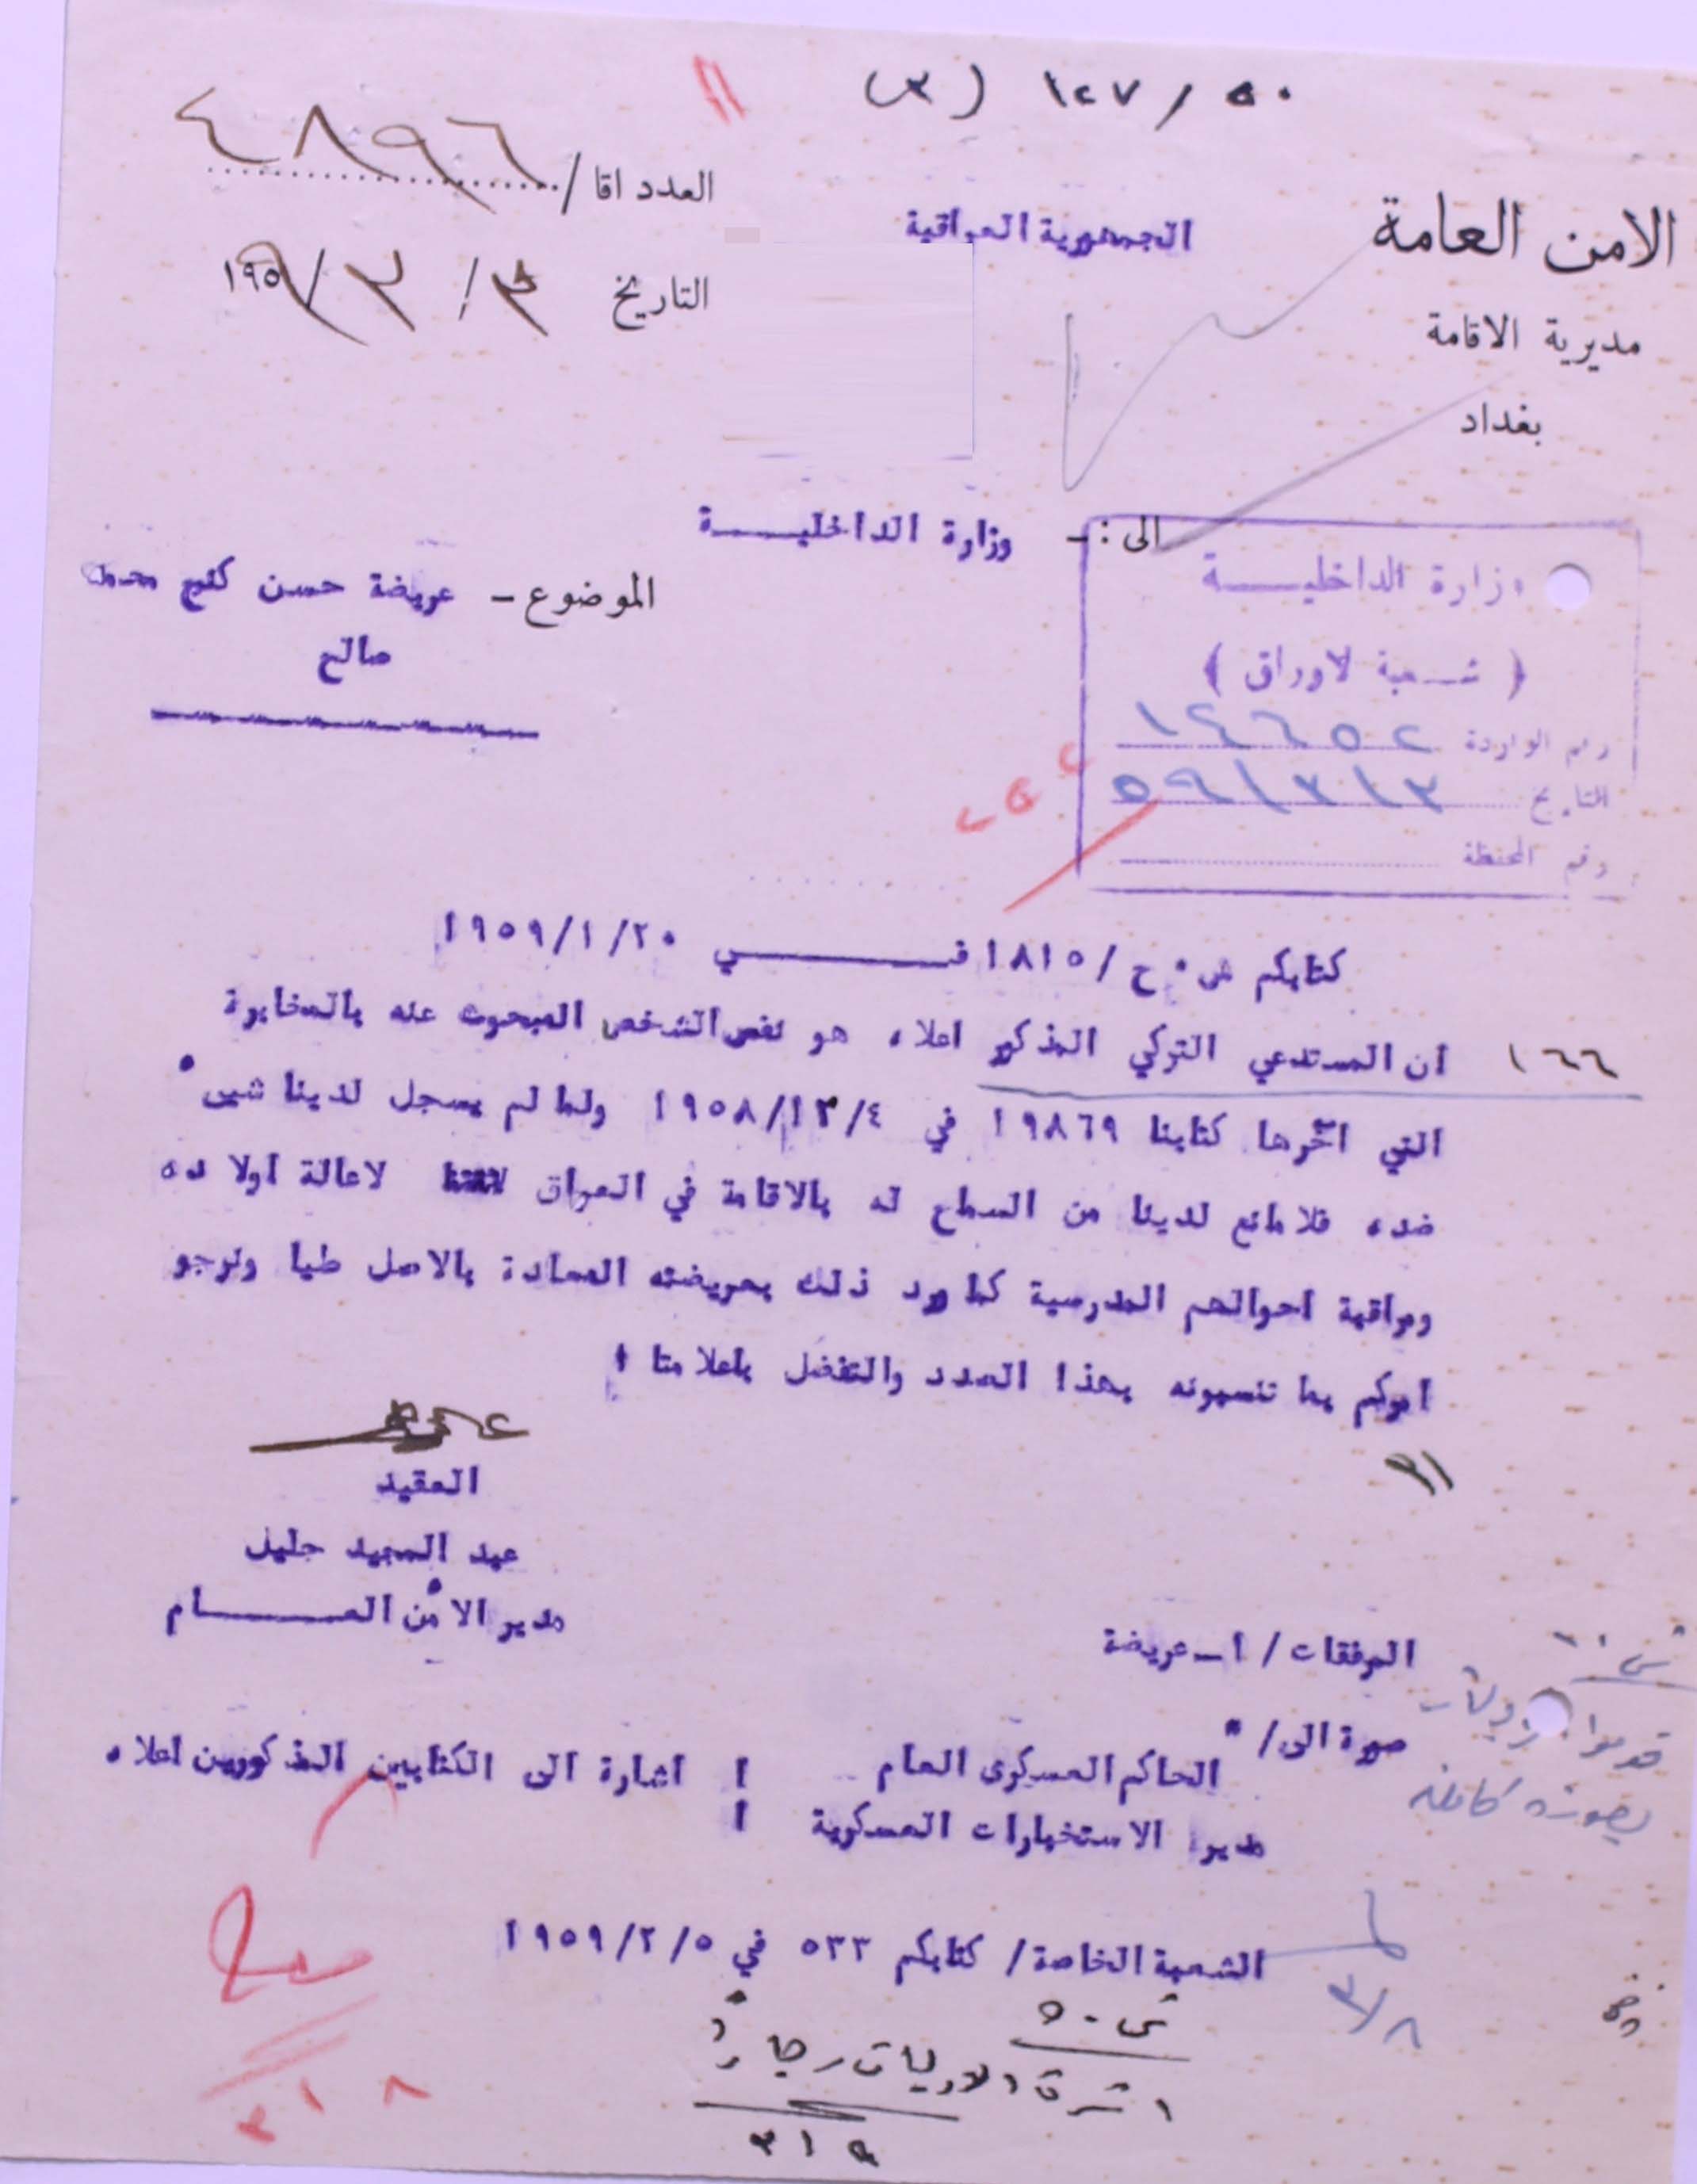 ٥٠ / ١٢٧ (٣)
الامن العامة
مديرية الاقامة
بغداد
الجمهورية العراقية
العدد اقا / ٤٨٩٦
التاريخ ٣ / ٣ / ١٩٥٩
الى :ـ وزارة الداخليـــــة
الموضوع ـ عريضة حسن كنج محمد
صالح
وزارة الداخليـــــة
( شـعبة لاوراق )
رقم الواردة ١٤٦٥٢
التاريخ ٣/٣/٥٩
رقم المحفظة
كتابكم ش٠ح /١٨١٥ فــــــي ١٩٥٩/١/٢٠
١٦٦
ان المستدعي التركي المذكور اعلاه هو نفس الشخص المبحوث عنه بالمخابرة
التي اخرها كتابنا ١٩٨٦٩ في ١٩٥٨/١٢/٤ ولما لم يسجل لدينا شيء
ضده فلا مانع لدينا من السماح له بالاقامة في العراق لاعالة اولاده
ومراقبة احوالهم المدرسية كما ورد ذلك بعريضته المعادة بالاصل طيا ونرجو
امركم بما تنسبونه بهذا الصدد والتفضل باعلامنا ٠
العقيد
عبد المجيد جليل
مدير الامن العـــــام
المرفقات / ١ـ عريضة
صورة الى /
الحاكم العسكرى العام
مدير الاستخبارات العسكرية
اشارة الى الكتابين المذكورين اعلاه
الشعبة الخاصة / كتابكم ٥٣٣ في ١٩٥٩/٢/٥
بصورة كاملة
٣/٨
ش ٥٠
الاوليات رجاءً
٣/٩
٣/٨